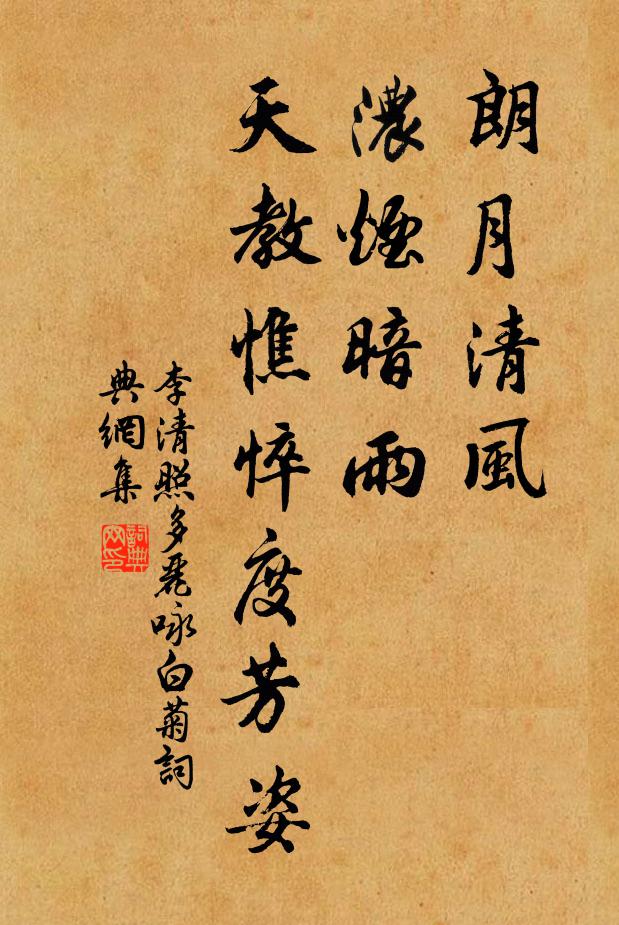 朗月清風
濃煙暗雨
天教憔悴度芳姿
李清照多麗咏白菊詞
典網集
詞典
网印